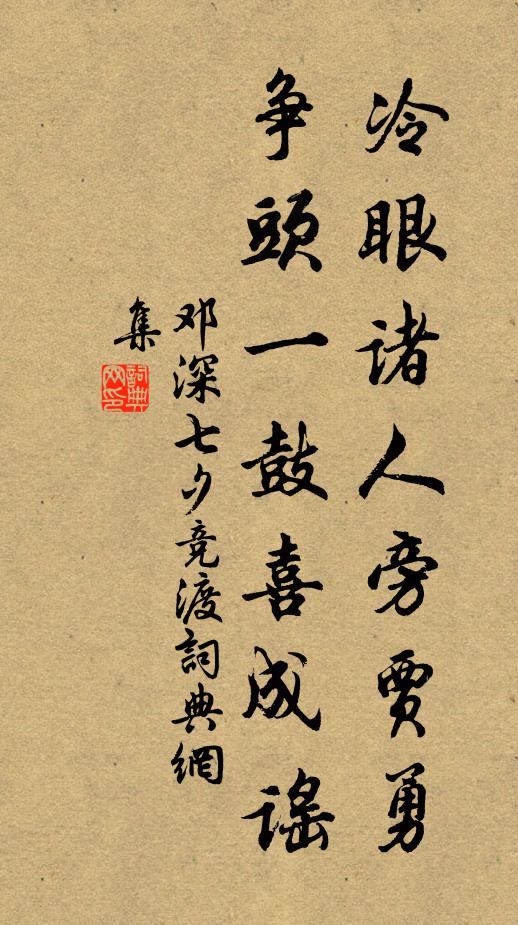 冷眼诸人旁贾勇
争头一鼓喜成谣
邓深七夕竞渡詞典網
集
詞典
网印